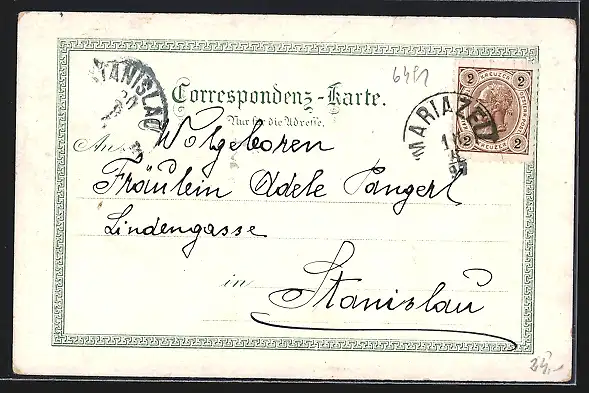 6481
STANISLAU
20
Correspondenz-Karte.
Nur für die Adresse.
MARIAZELL
2 KREUZER 2
2 KREUZER 2
An Wolgeboren
Fräulein Adele Pangerl
Lindengasse
in Stanislau
25,-